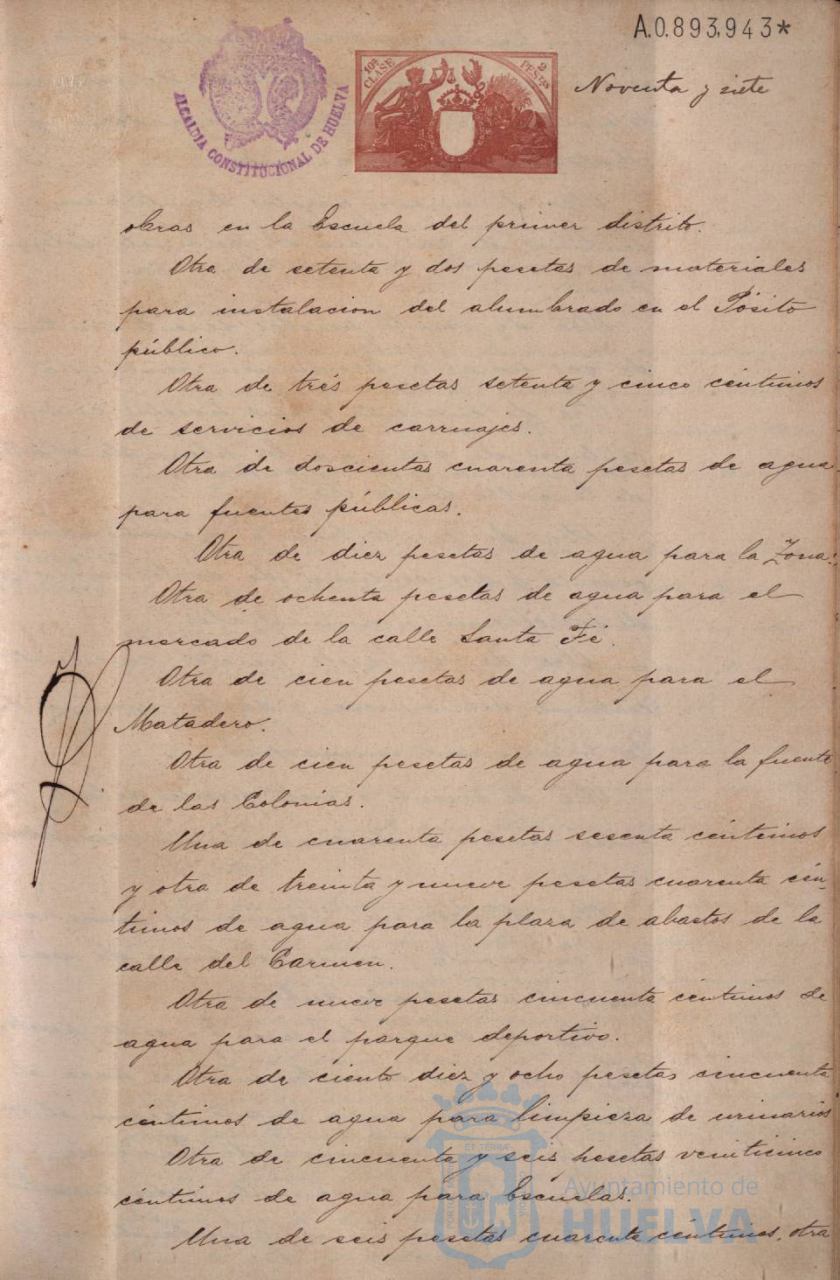 A.0.893,943*
10ª CLASE
2 PESTAS
ALCALDIA CONSTITUCIONAL DE HUELVA
Noventa y siete
obras en la Escuela del primer distrito.
Otra de setenta y dos pesetas de materiales
para instalacion del alumbrado en el Pósito
público.
Otra de trés pesetas setenta y cinco céntimos
de servicios de carruajes.
Otra de doscientas cuarenta pesetas de agua
para fuentes públicas.
Otra de diez pesetas de agua para la Zona.
Otra de ochenta pesetas de agua para el
mercado de la calle Santa Fé.
Otra de cien pesetas de agua para el
Matadero.
Otra de cien pesetas de agua para la fuente
de las Colonias.
Una de cuarenta pesetas sesenta céntimos
y otra de treinta y nueve pesetas cuarenta cén-
timos de agua para la plaza de abastos de la
calle del Carmen.
Otra de nueve pesetas cincuenta céntimos de
agua para el parque deportivo.
Otra de ciento diez y ocho pesetas cincuenta
céntimos de agua para limpieza de urinarios
Otra de cincuenta y seis pesetas veinticinco
céntimos de agua para Escuelas.
Una de seis pesetas cuarenta céntimos, otra
Ayuntamiento de
HUELVA